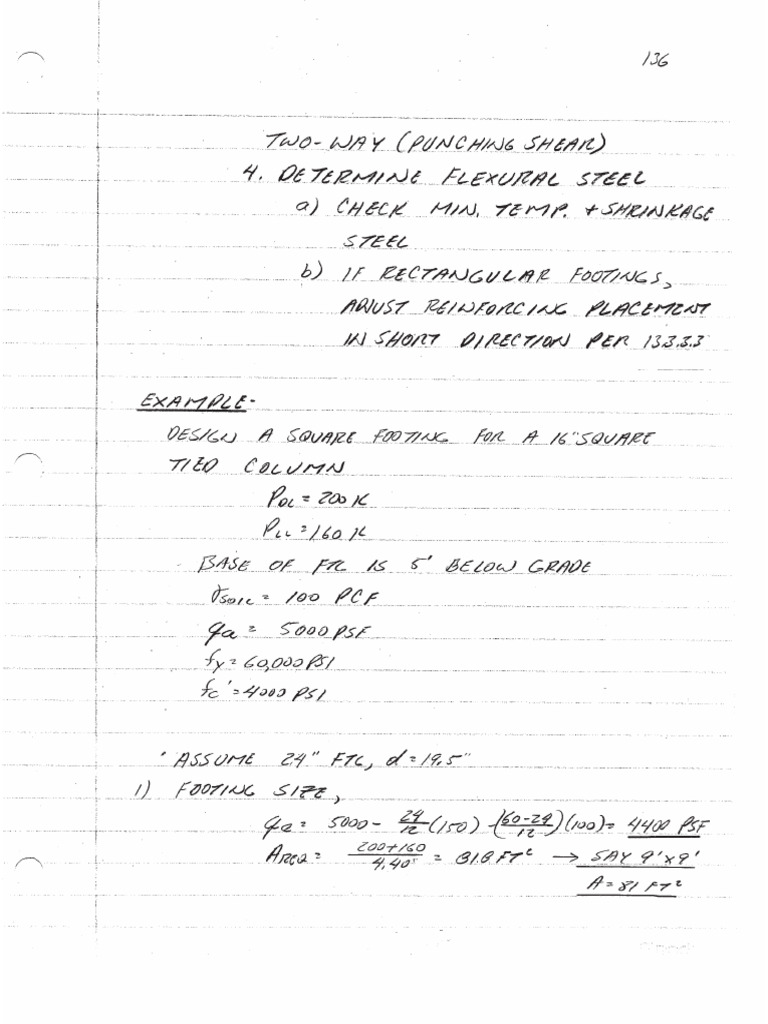 136
TWO-WAY (PUNCHING SHEAR)
4. DETERMINE FLEXURAL STEEL
a) CHECK MIN. TEMP. + SHRINKAGE
STEEL
b) IF RECTANGULAR FOOTINGS,
ADJUST REINFORCING PLACEMENT
IN SHORT DIRECTION PER 13.3.3.3
EXAMPLE-
DESIGN A SQUARE FOOTING FOR A 16" SQUARE
TIED COLUMN
PDL = 200 K
PLL = 160 K
BASE OF FTG IS 5' BELOW GRADE
γSOIL = 100 PCF
qa = 5000 PSF
fy = 60,000 PSI
fc' = 4000 PSI
· ASSUME 24" FTG, d = 19.5"
1) FOOTING SIZE,
qe = 5000 - 24/12 (150) - (60-24/12)(100) = 4400 PSF
AREQ = 200+160/4.40 = 81.8 FT² → SAY 9'x9'
A = 81 FT²